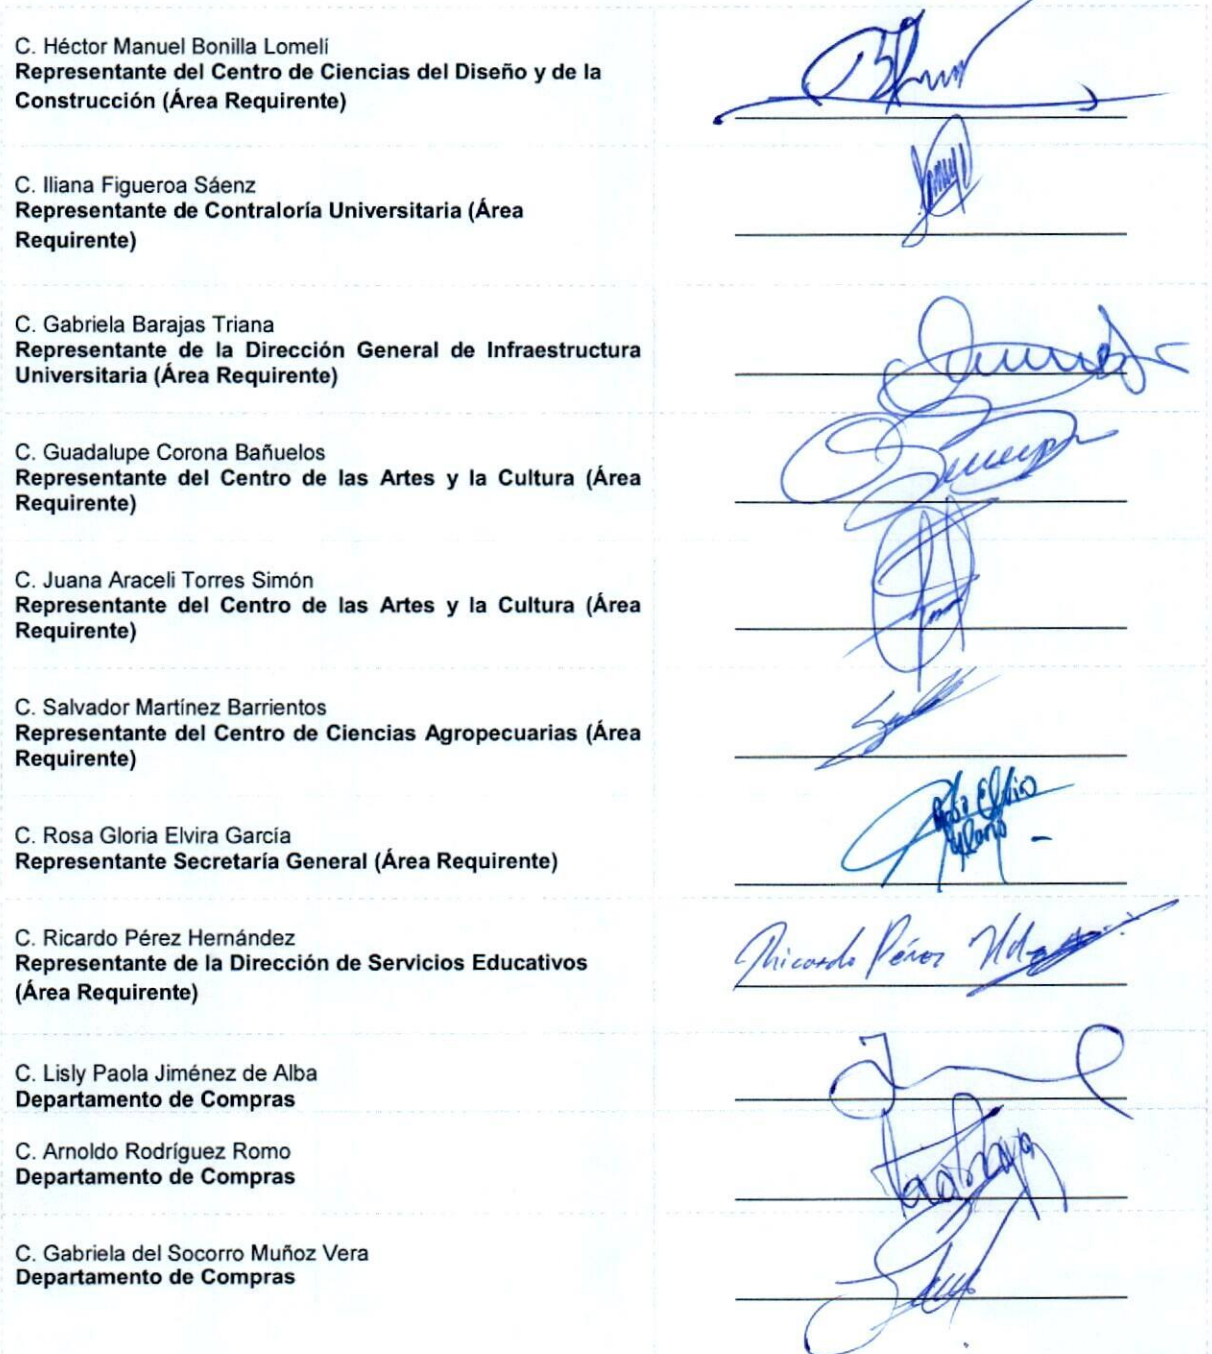 C. Héctor Manuel Bonilla Lomelí
Representante del Centro de Ciencias del Diseño y de la
Construcción (Área Requirente)
C. Iliana Figueroa Sáenz
Representante de Contraloría Universitaria (Área
Requirente)
C. Gabriela Barajas Triana
Representante de la Dirección General de Infraestructura
Universitaria (Área Requirente)
C. Guadalupe Corona Bañuelos
Representante del Centro de las Artes y la Cultura (Área
Requirente)
C. Juana Araceli Torres Simón
Representante del Centro de las Artes y la Cultura (Área
Requirente)
C. Salvador Martínez Barrientos
Representante del Centro de Ciencias Agropecuarias (Área
Requirente)
C. Rosa Gloria Elvira García
Representante Secretaría General (Área Requirente)
C. Ricardo Pérez Hernández
Representante de la Dirección de Servicios Educativos
(Área Requirente)
Ricardo Pérez
C. Lisly Paola Jiménez de Alba
Departamento de Compras
C. Arnoldo Rodríguez Romo
Departamento de Compras
C. Gabriela del Socorro Muñoz Vera
Departamento de Compras